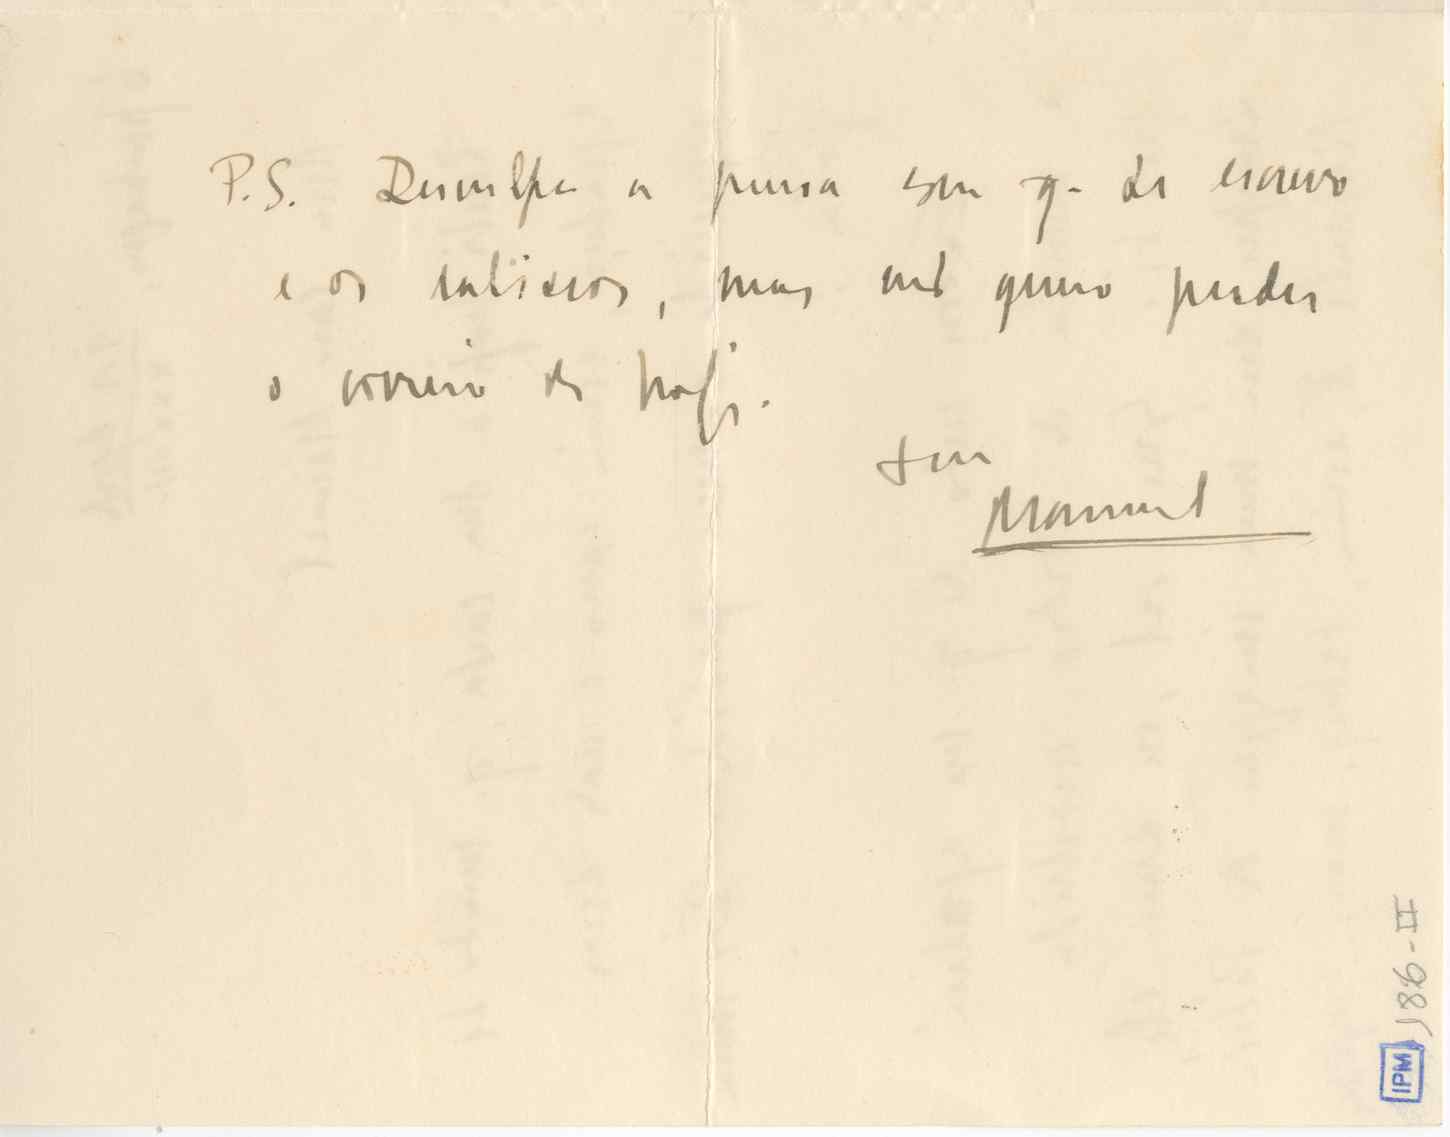 P.S. Desculpa a pressa com q. te escrevo
e os rabiscos, mas não quero perder
o correio de hoje.
teu
Manuel
1186-II
IPM